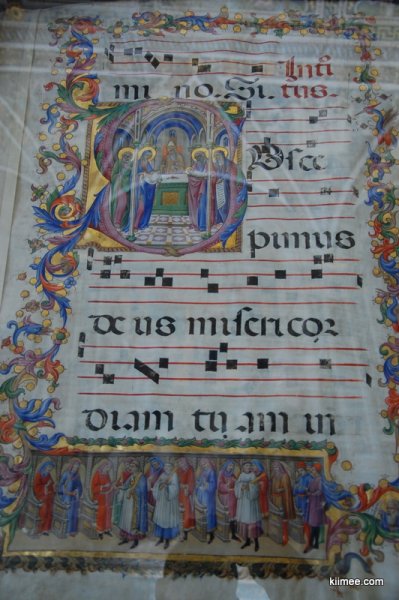 Intr
mi no. Si. tus.
S usce
pimus
de us misericor
diam tu am in
kiimee.com